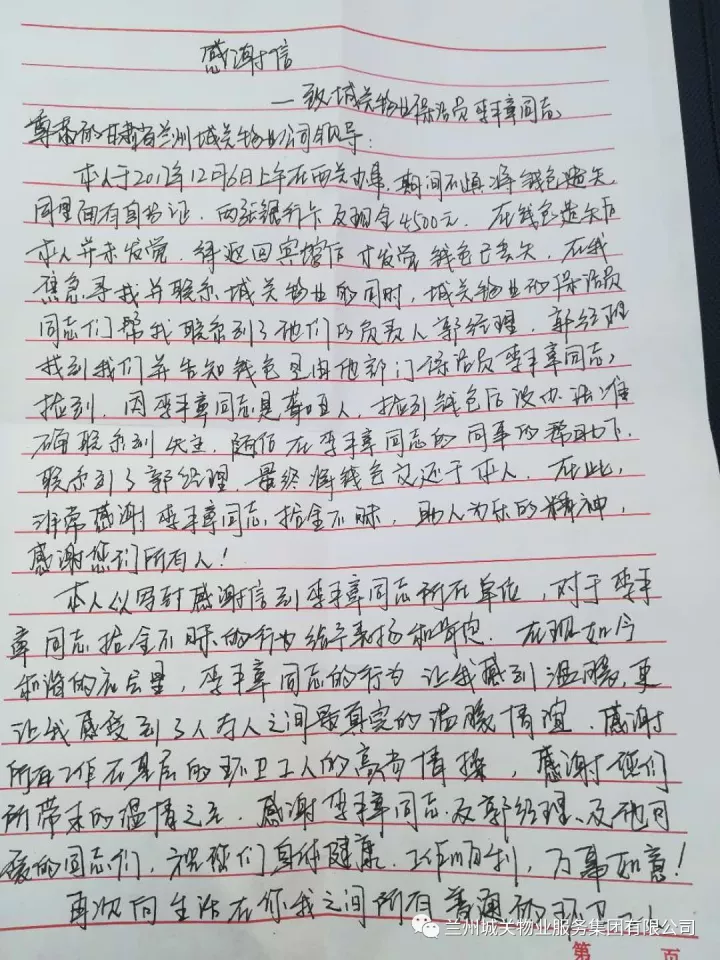 感谢信
——致城关物业保洁员李平章同志
尊敬的甘肃省兰州城关物业公司领导：
本人于2017年12月6日上午在西关办事，期间不慎将钱包遗失，
同里面有身份证，两张银行卡及现金4500元。在钱包遗失后
本人并未发觉，得返回宾馆后才发觉钱包已丢失，在我
焦急寻找并联系城关物业的同时，城关物业的保洁员
同志们帮我联系到了他们的负责人郭经理，郭经理
找到我们并告知钱包是由他部门保洁员李平章同志
捡到，因李平章同志是聋哑人，捡到钱包后没办法准
确联系到失主，随后在李平章同志的同事的帮助下，
联系到了郭经理，最终将钱包交还于本人。在此，
非常感谢李平章同志拾金不昧，助人为乐的精神，
感谢您们所有人！
本人以写封感谢信到李平章同志所在单位，对于李平
章同志拾金不昧的行为给予表扬和肯定。在现如今
和谐的社会里，李平章同志的行为让我感到温暖，更
让我感受到了人与人之间最真实的温暖情谊。感谢
所有工作在基层的环卫工人的高尚情操，感谢您们
所带来的温情之意。感谢李平章同志及郭经理、及他可
爱的同志们，祝您们身体健康，工作顺利，万事如意！
再次向生活在你我之间所有普通的环卫工人
兰州城关物业服务集团有限公司
第 页